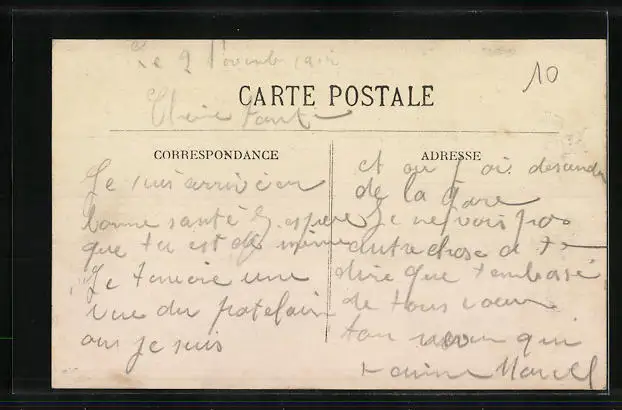 Le 9 Novembre
10
CARTE POSTALE
Chère tante
CORRESPONDANCE
Je suis arrivé en
bonne santé j, espere
que tu est de même
Je tenvoie une
vue du patelain
ou je suis
ADRESSE
et ou j ai desendu
de la gare
Je ne vois pas
autre chose a te
dire que tembrasé
de tous coeur
ton qui
taime Marcel